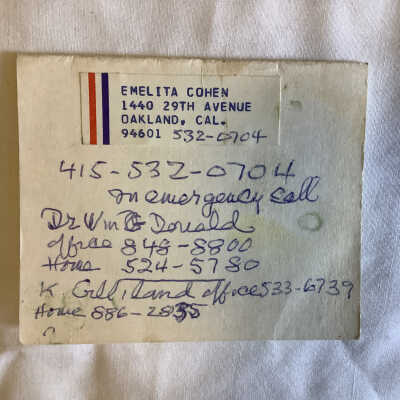 EMELITA COHEN
1440 29TH AVENUE
OAKLAND, CAL.
94601 532-0704
415-532-0704
In emergency call
Dr Wm G Donald
Office 848-8800
Home 524-5780
K Gilliland office 533-6739
Home 886-2855